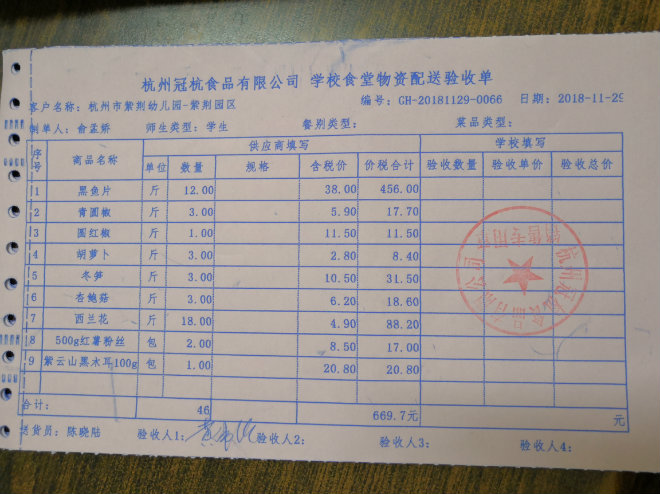 杭州冠杭食品有限公司 学校食堂物资配送验收单
客户名称: 杭州市紫荆幼儿园-紫荆园区 编号: GH-20181129-0066 日期: 2018-11-29
制单人: 俞孟娇 师生类型: 学生 餐别类型: 菜品类型:
序号 商品名称 供应商填写 学校填写
单位 数量 规格 含税价 价税合计 验收数量 验收单价 验收总价
1 黑鱼片 斤 12.00 38.00 456.00
2 青圆椒 斤 3.00 5.90 17.70
3 圆红椒 斤 1.00 11.50 11.50
4 胡萝卜 斤 3.00 2.80 8.40
5 冬笋 斤 3.00 10.50 31.50
6 杏鲍菇 斤 3.00 6.20 18.60
7 西兰花 斤 18.00 4.90 88.20
8 500g红薯粉丝 包 2.00 8.50 17.00
9 紫云山黑木耳100g 包 1.00 20.80 20.80
合计: 46 669.7元 元
送货员: 陈晓陆 验收人1: 验收人2: 验收人3: 验收人4:
杭州冠杭食品有限公司
销售专用章